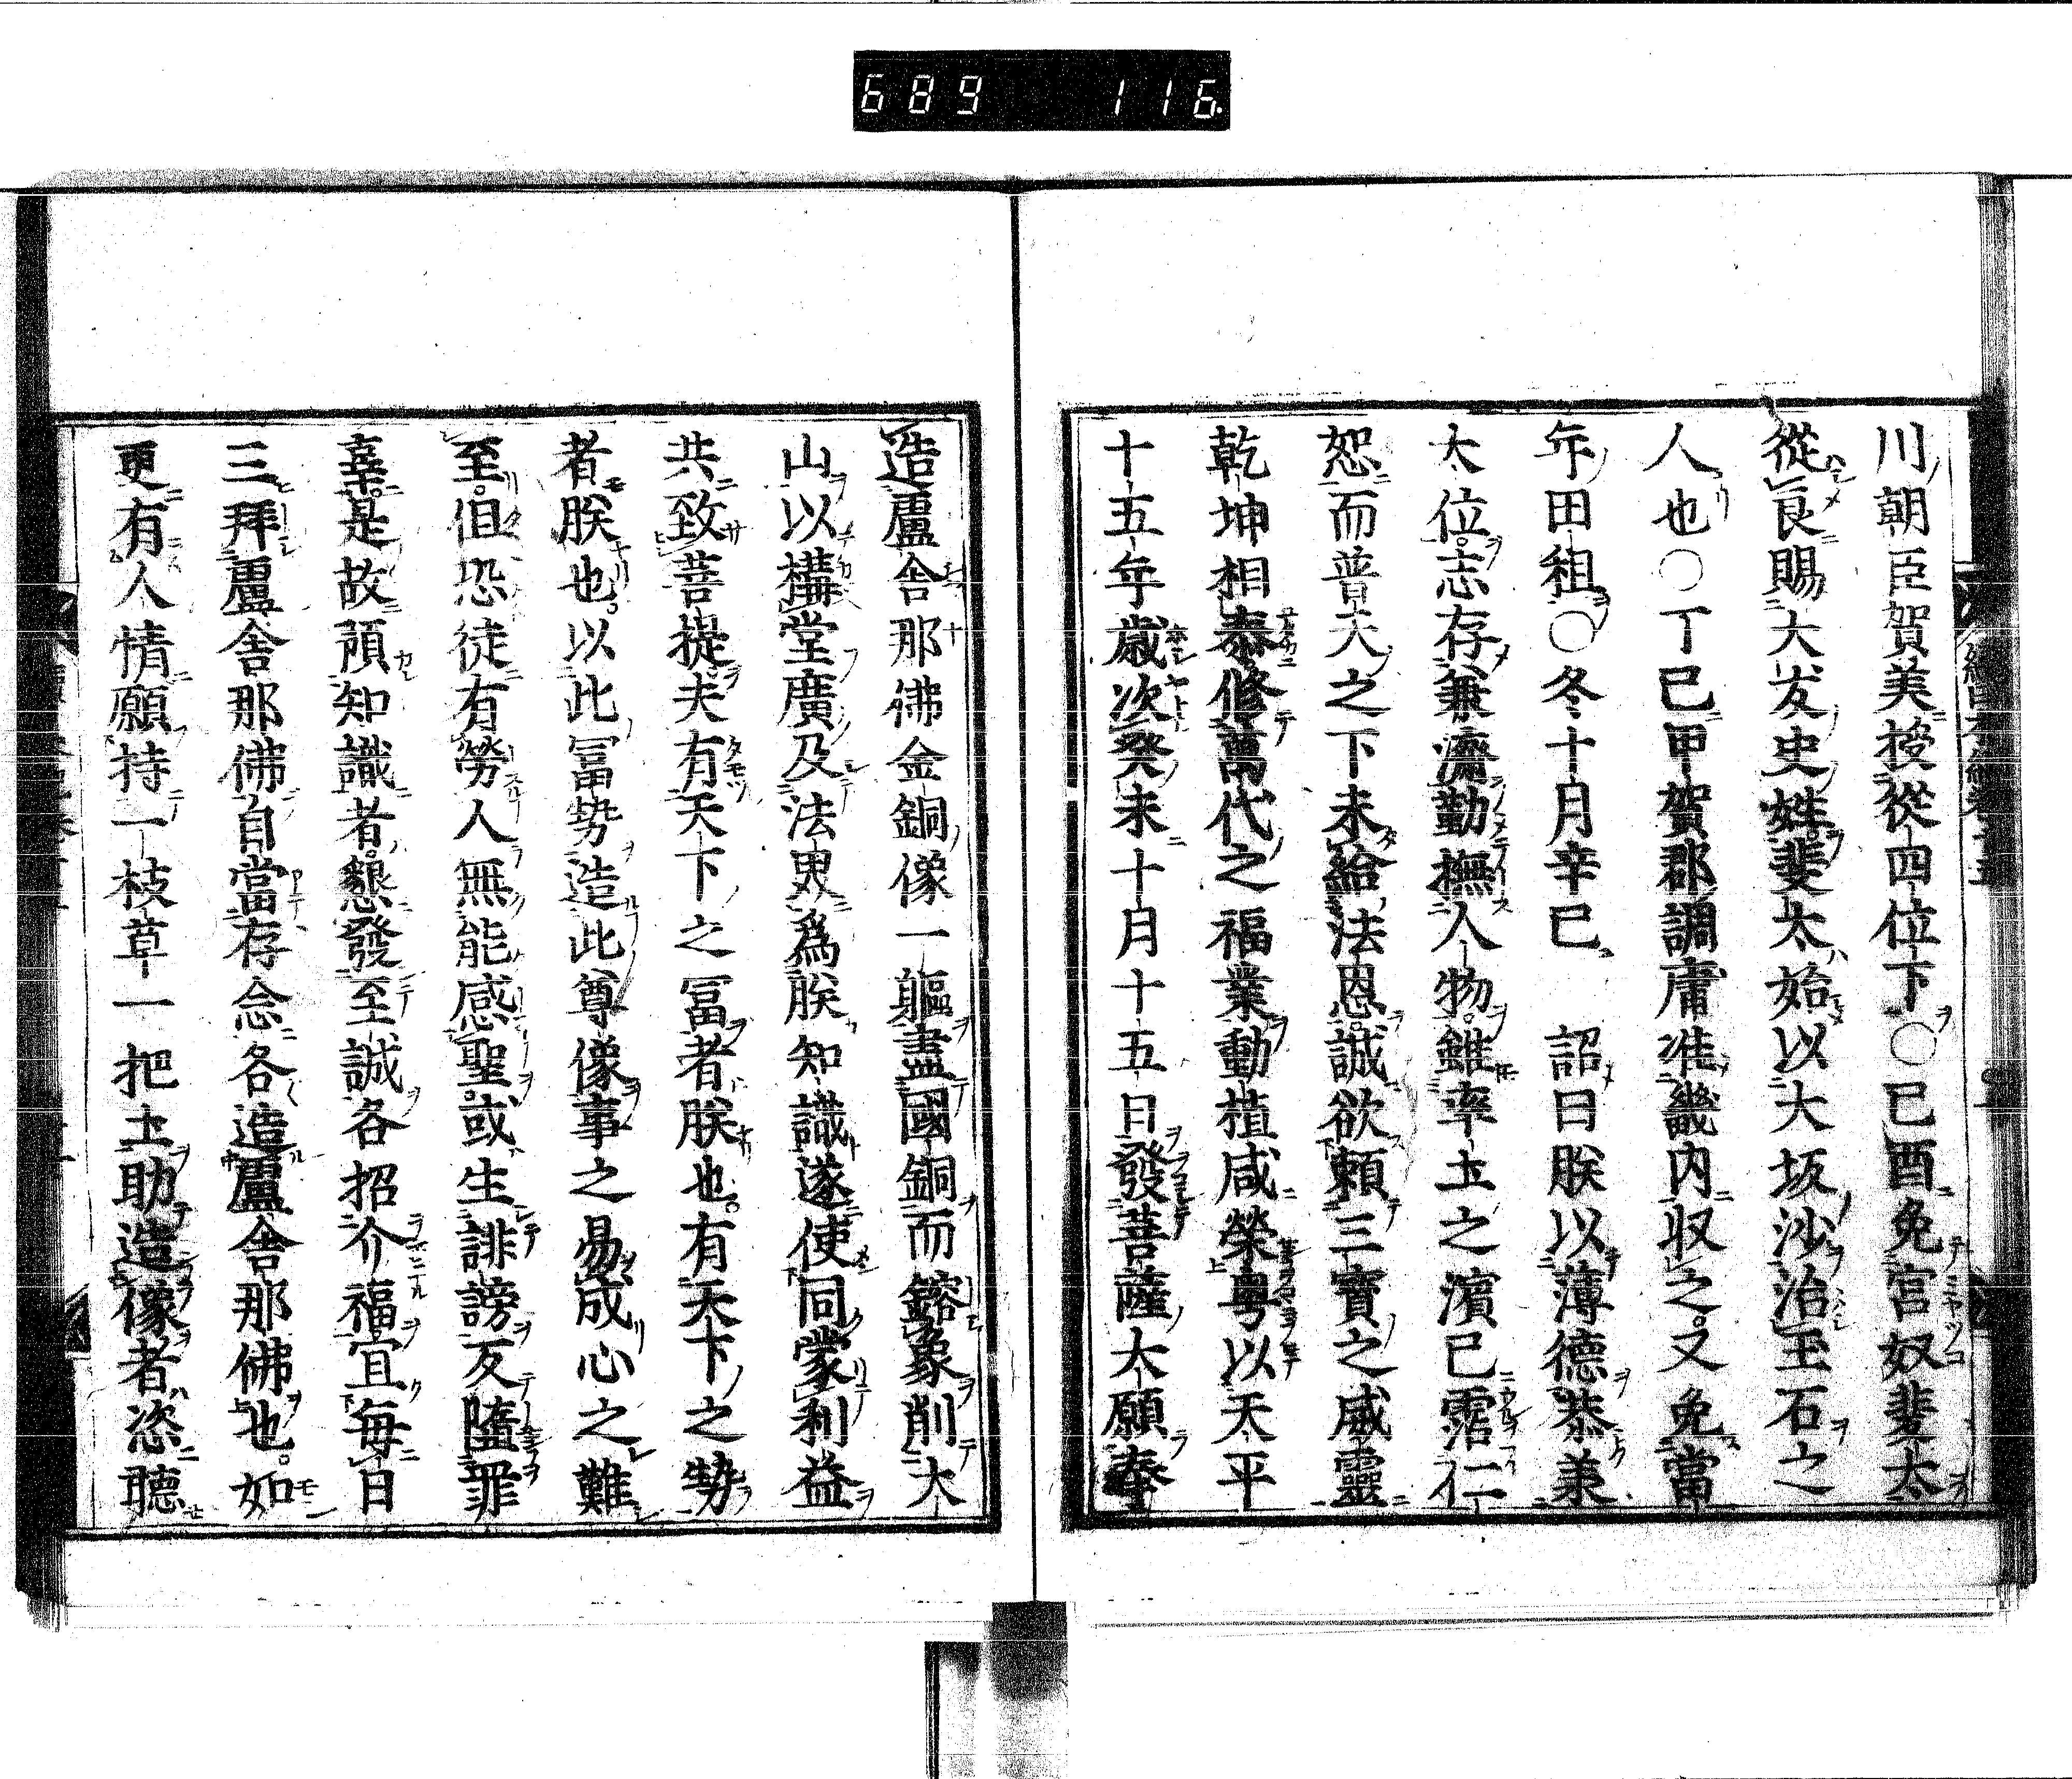 689 116
川朝臣賀美授從四位下○已酉免官奴斐太
從良賜大友史姓斐太始以大坂沙治玉石之
人也○丁巳甲賀郡調庸准畿内収之又免當
年田租○冬十月辛巳 詔曰朕以薄德恭兼
大位志存兼濟勤撫人物雖率土之濱已霑仁
恕而普天之下未給法恩誠欲頼三寳之威靈
乾坤相泰修萬代之福業動植咸榮粤以天平
十五年歳次癸未十月十五日發菩薩大願奉
造盧舎那佛金銅像一軀盡國銅而鎔象削大
山以構堂廣及法界爲朕知識遂使同蒙利益
共致菩提夫有天下之冨者朕也有天下之勢
者朕也以此冨勢造此尊像事之易成心之難
至但恐徒有勞人無能感聖或生誹謗反墮罪
辜是故預知識者懇發至誠各招介福宜毎日
三拜盧舎那佛自當存念各造盧舎那佛也如
更有人情願持一枝草一把土助造像者恣聽